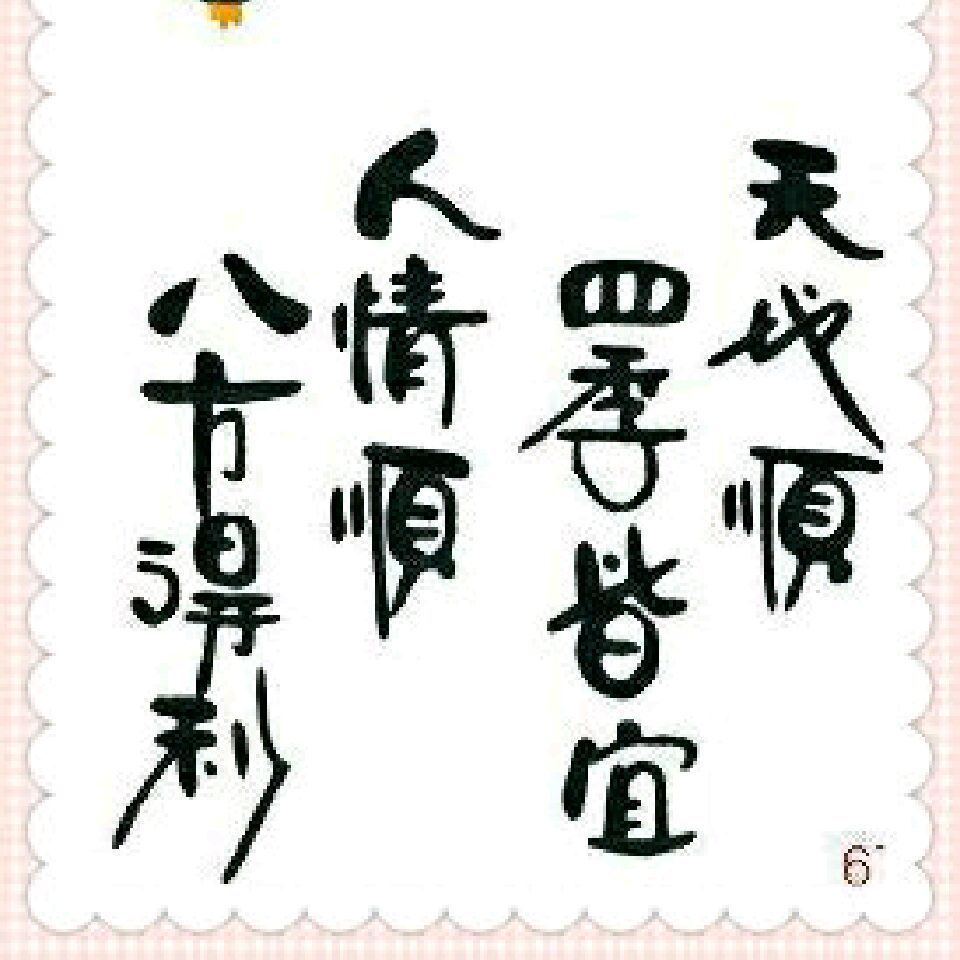 天地順
四季皆宜
人情順
八方得利
6